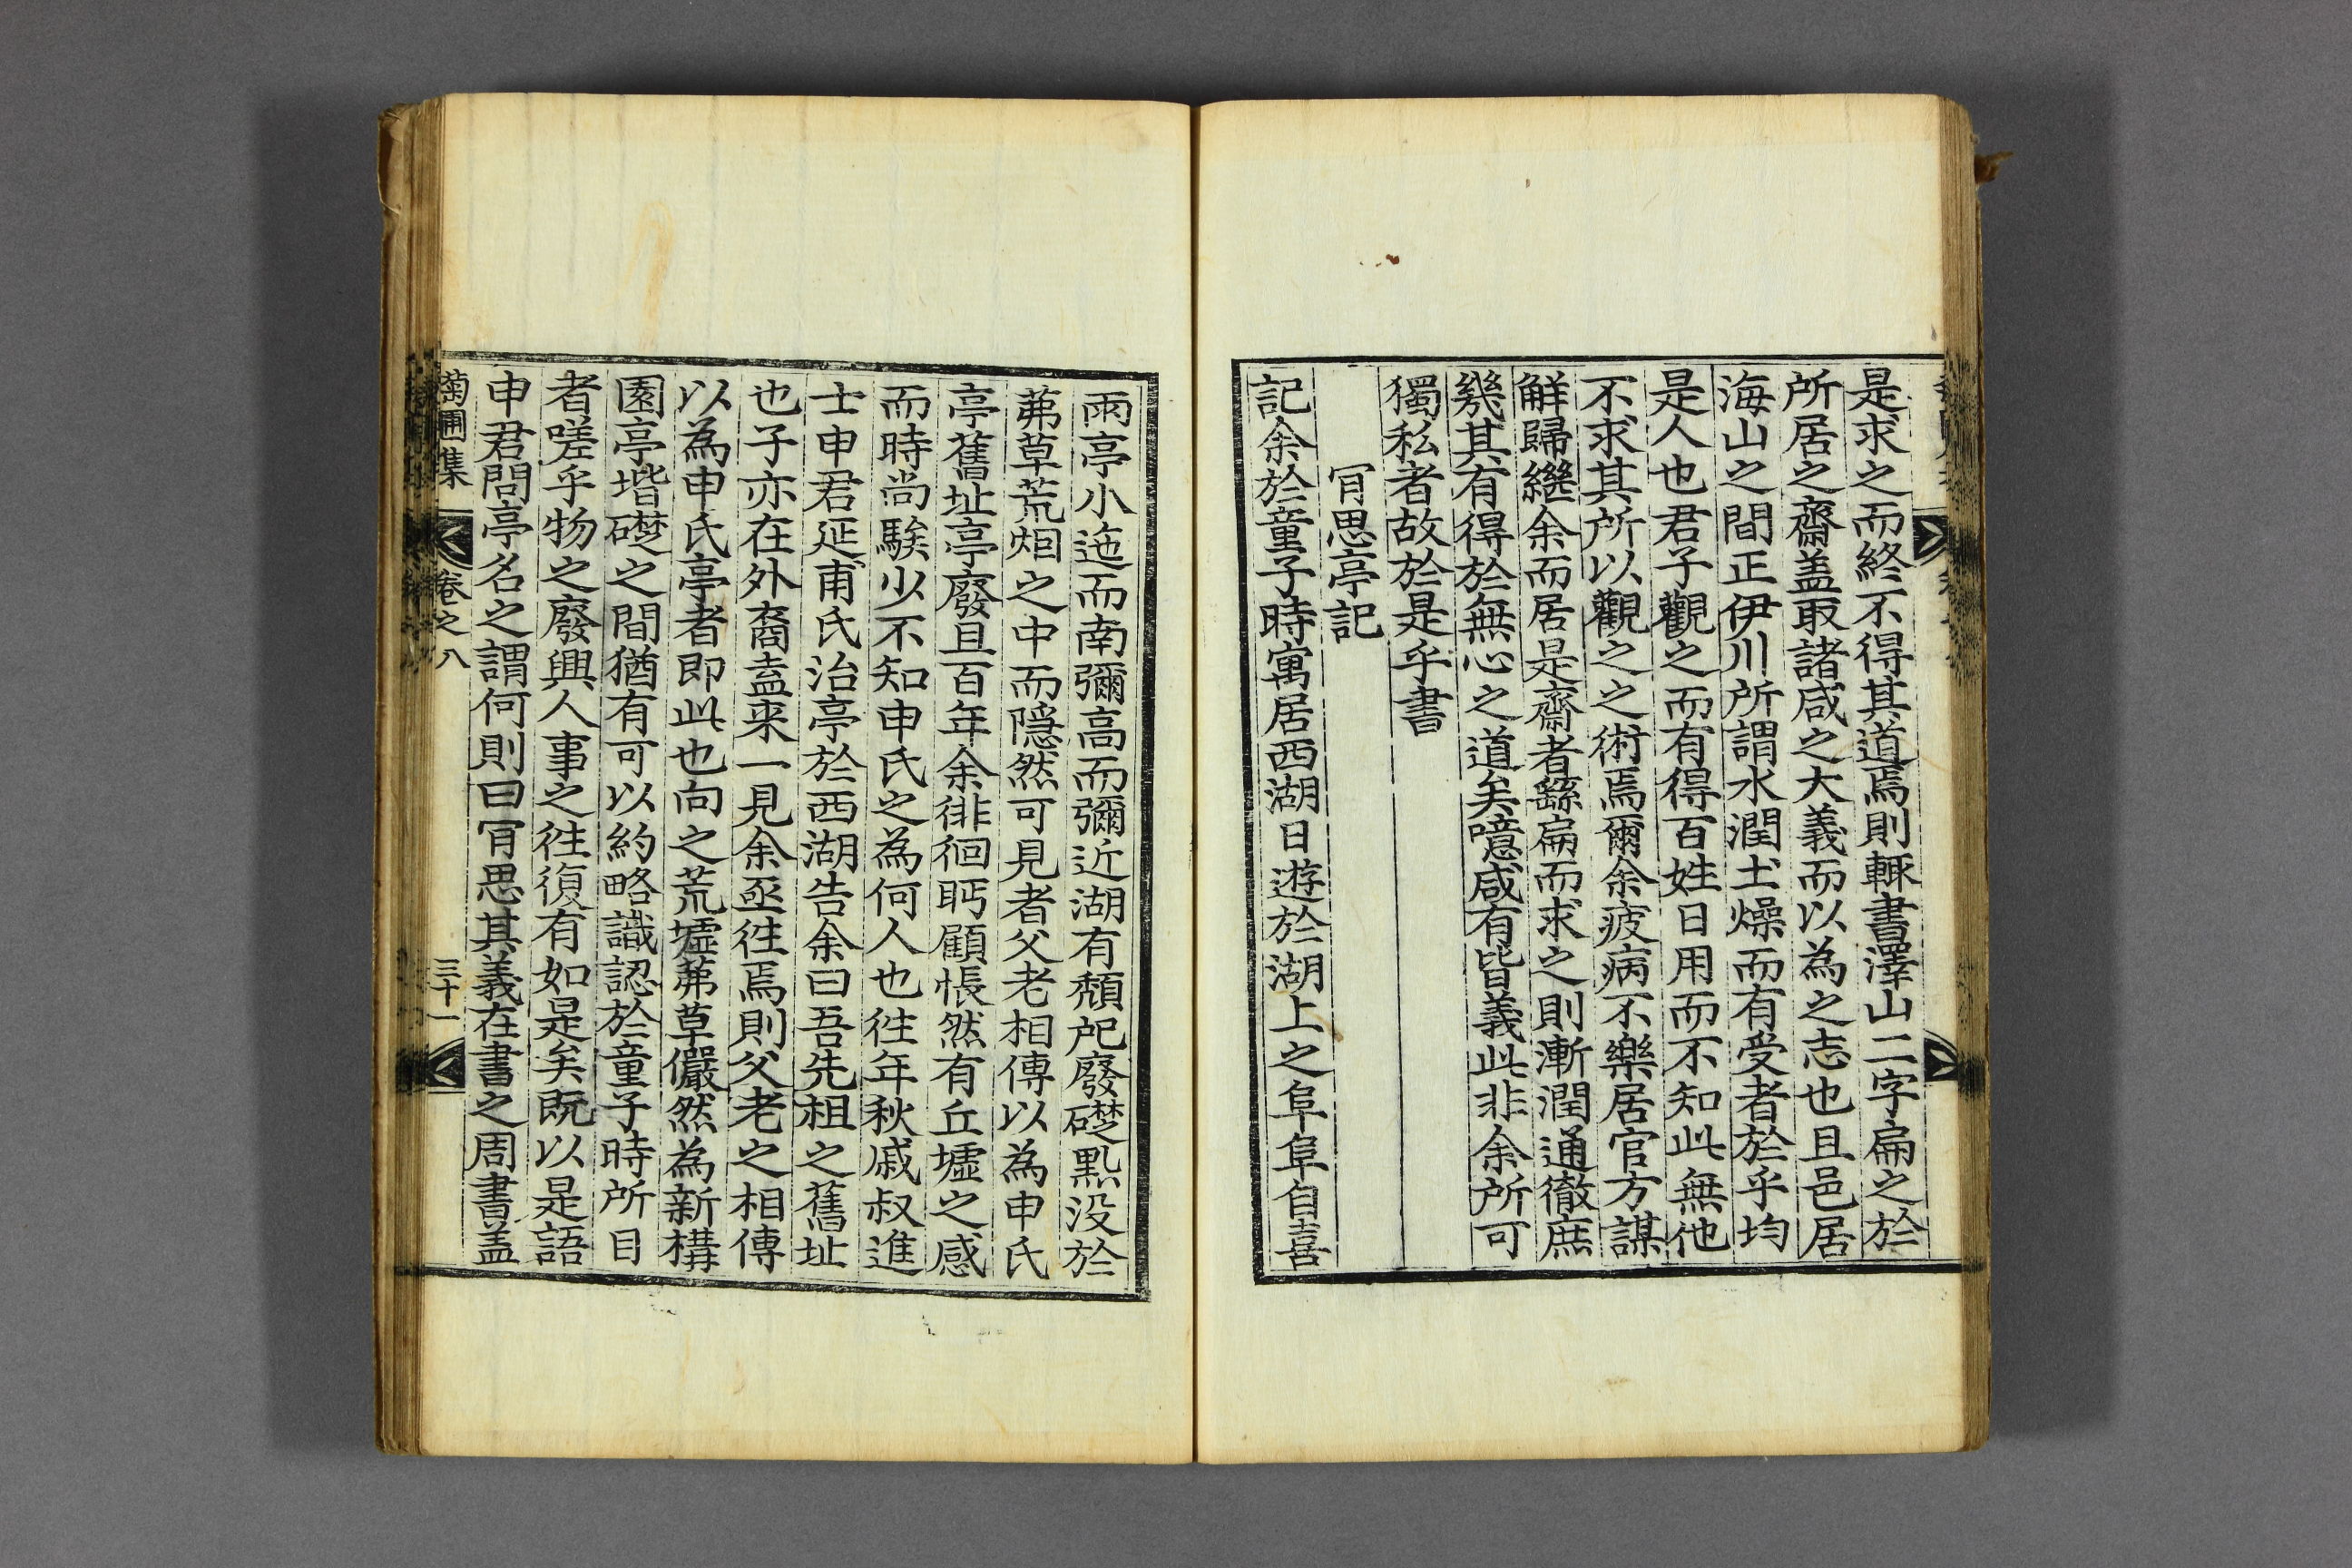 是求之而終不得其道焉則輒書澤山二字扁之於
所居之齋盖取諸咸之大義而以為之志也且邑居
海山之間正伊川所謂水潤土燥而有受者於乎均
是人也君子觀之而有得百姓日用而不知此無他
不求其所以觀之之術焉爾余疲病不樂居官方謀
觧歸繼余而居是齋者繇扁而求之則漸潤通徹庶
幾其有得於無心之道矣噫咸有皆義此非余所可
獨私者故於是乎書
肎思亭記
記余於童子時寓居西湖日遊於湖上之阜阜自喜
雨亭小迤而南彌高而彌近湖有頽圮廢礎㸃没於
茀草荒烟之中而隠然可見者父老相傳以為申氏
亭舊址亭廢且百年余徘徊眄顧悵然有丘墟之感
而時尚騃少不知申氏之為何人也徃年秋戚叔進
士申君延甫氏治亭於西湖告余曰吾先祖之舊址
也子亦在外裔盍来一見余亟徃焉則父老之相傳
以為申氏亭者即此也向之荒墟茀草儼然為新構
園亭堦礎之間猶有可以約略識認於童子時所目
者嗟乎物之廢興人事之徃復有如是矣既以是語
申君問亭名之謂何則曰肎思其義在書之周書盖
菊圃集 卷之八 三十一